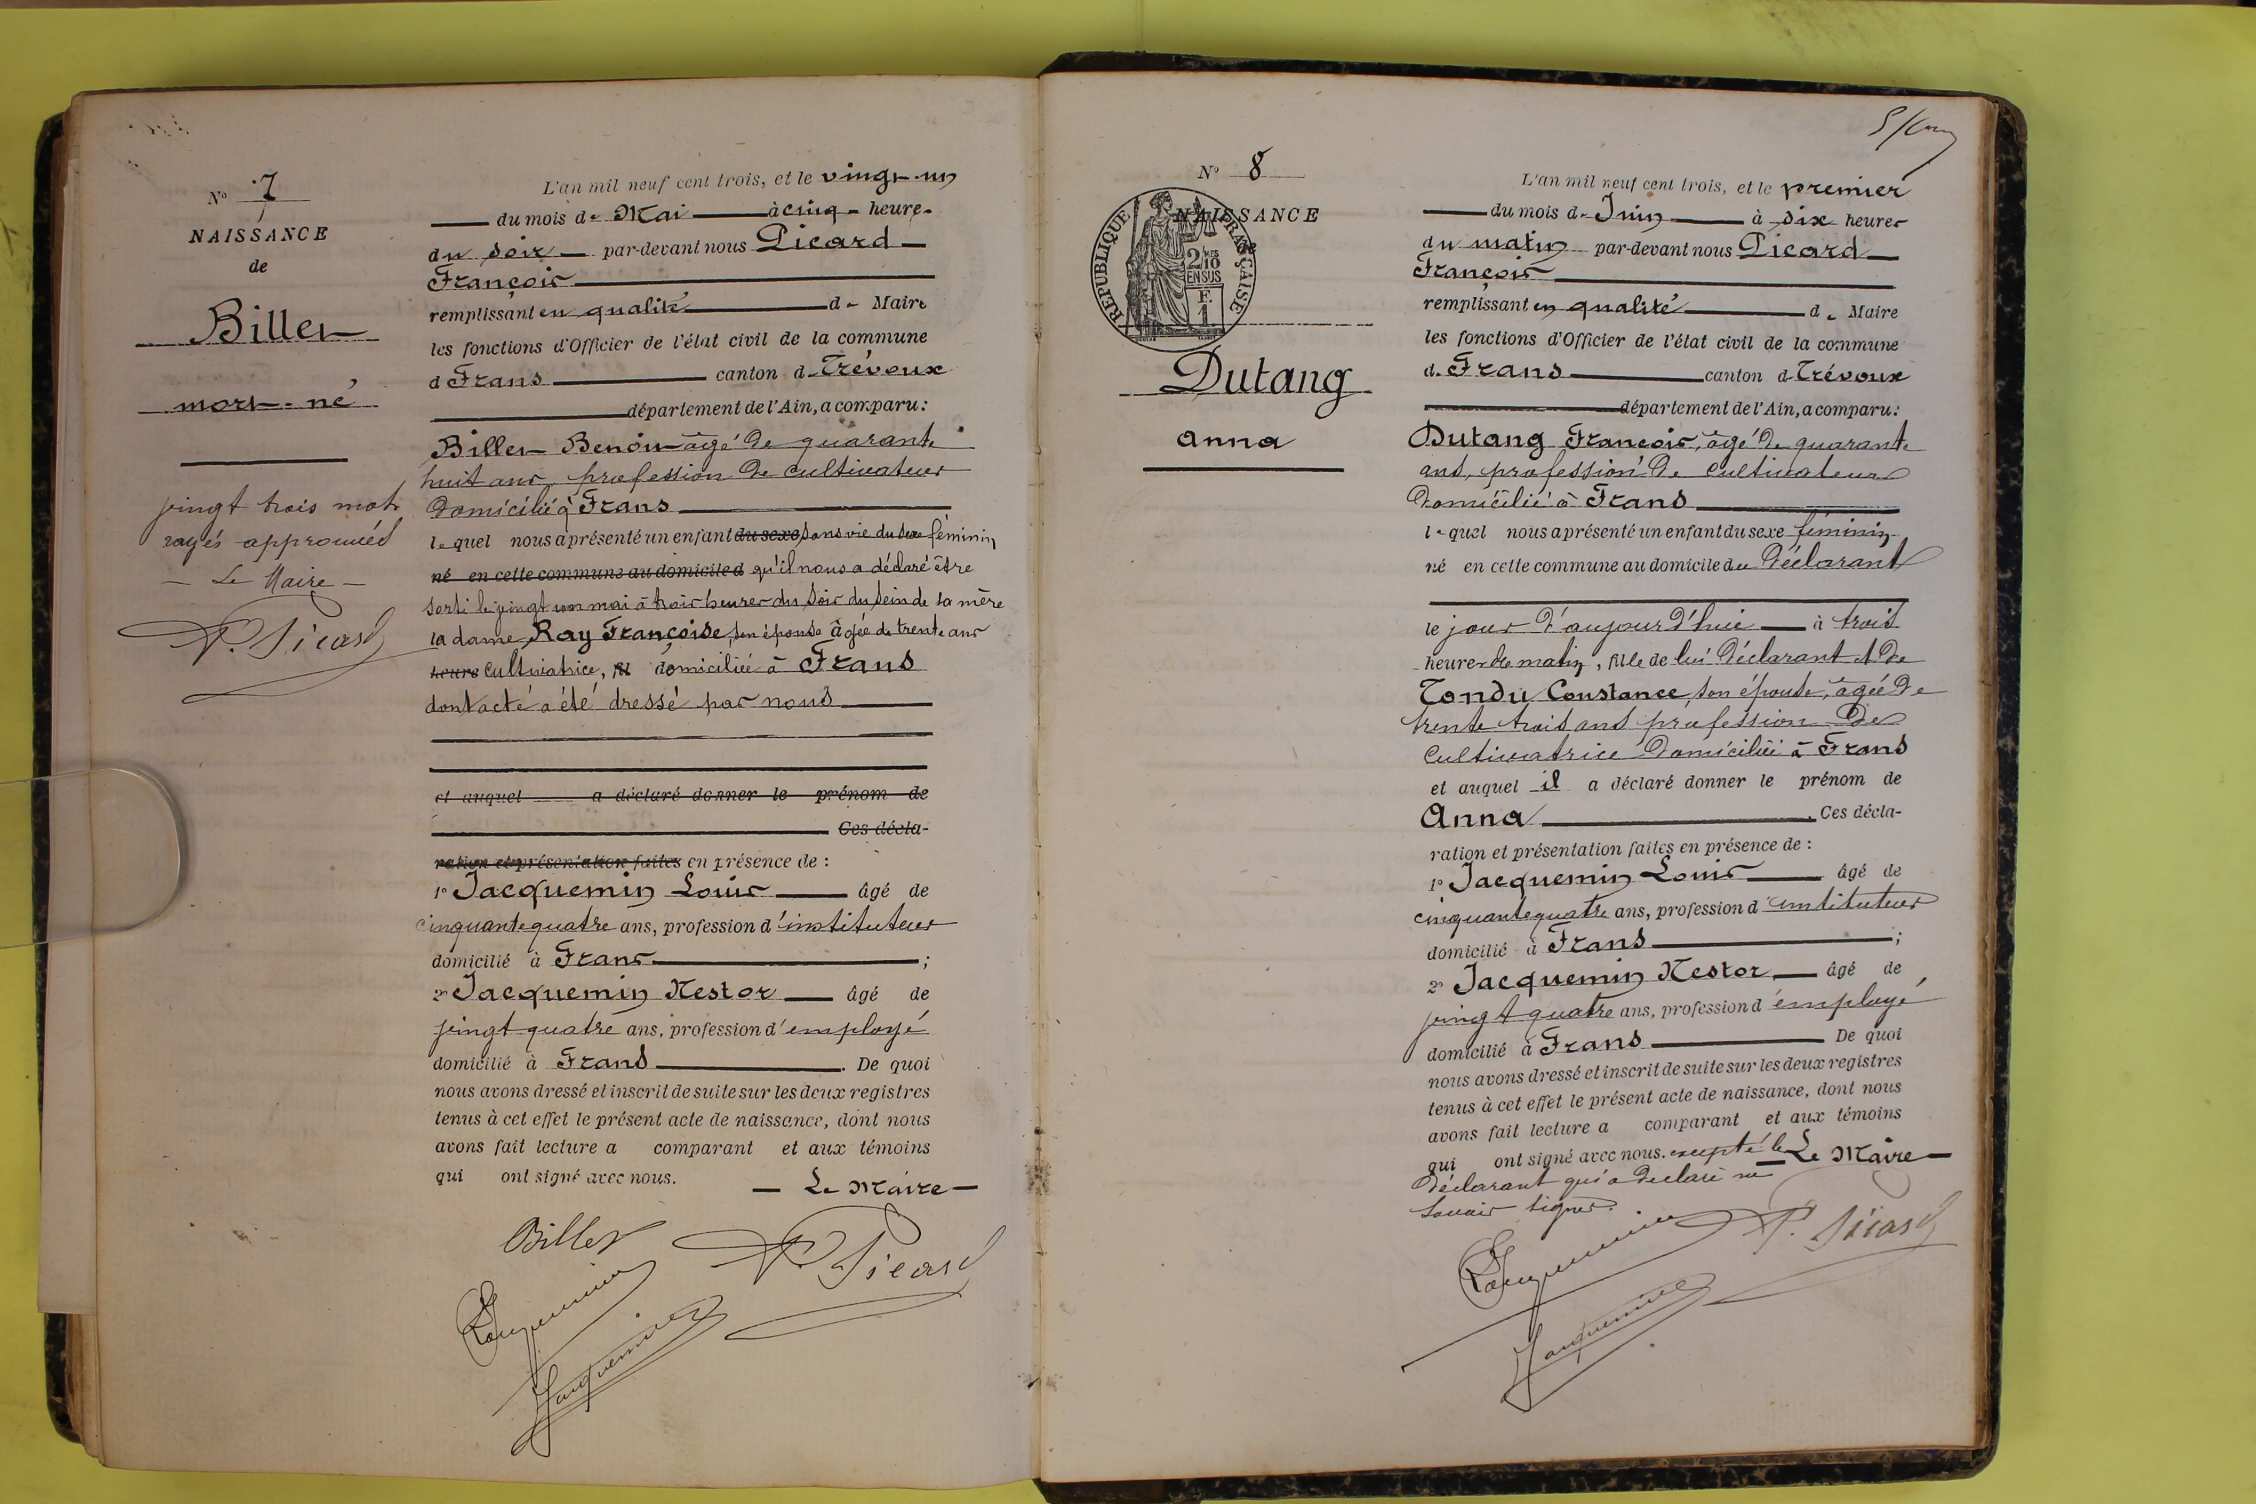 N° 7
NAISSANCE
de
Biller
mort-né
vingt trois mots
rayés approuvés
Le Maire
P. Picard
L'an mil neuf cent trois, et le vingt-un
du mois de Mai à cinq heures
du soir par-devant nous Picard
François
remplissant en qualité de Maire
les fonctions d'Officier de l'état civil de la commune
d Frans canton d Trévoux
département de l'Ain, a comparu:
Biller Benoit âgé de quarante
huit ans, profession de cultivateur
domicilié à Frans
lequel nous a présenté un enfant du sexe sans vie du sexe féminin
né en cette commune au domicile d qu'il nous a déclaré être
sorti le vingt un mai à trois heures du soir du sein de sa mère
la dame Ray Françoise, son épouse âgée de trente ans
heure cultivatrice, fil domiciliée à Frans
dont acte a été dressé par nous
et auquel a déclaré donner le prénom de
Ces décla-
ration et présentation faites en présence de :
1° Jacquemin Louis âgé de
cinquante quatre ans, profession d'instituteur
domicilié à Frans ;
2° Jacquemin Nestor âgé de
vingt quatre ans, profession d'employé
domicilié à Frans . De quoi
nous avons dressé et inscrit de suite sur les deux registres
tenus à cet effet le présent acte de naissance, dont nous
avons fait lecture a comparant et aux témoins
qui ont signé avec nous.
Le Maire
Biller
P. Picard
Jacquemin
Jacquemin
N° 8
NAISSANCE
de
RÉPUBLIQUE FRANÇAISE
2/10
EN SUS
F.
1
Dutang
Anna
L'an mil neuf cent trois, et le premier
du mois de Juin à six heures
du matin par-devant nous Picard
François
remplissant en qualité de Maire
les fonctions d'Officier de l'état civil de la commune
de Frans canton d Trévoux
département de l'Ain, a comparu:
Dutang François, âgé de quarante
ans, profession de cultivateur
domicilié à Frans
lequel nous a présenté un enfant du sexe féminin
né en cette commune au domicile du déclarant
le jour d'aujourd'hui à trois
heures du matin, fille de lui déclarant et de
Tondu Constance, son épouse, âgée de
trente trois ans profession de
cultivatrice domiciliée à Frans
et auquel il a déclaré donner le prénom de
Anna . Ces décla-
ration et présentation faites en présence de :
1° Jacquemin Louis âgé de
cinquante quatre ans, profession d'instituteur
domicilié à Frans ;
2° Jacquemin Nestor âgé de
vingt quatre ans, profession d'employé
domicilié à Frans De quoi
nous avons dressé et inscrit de suite sur les deux registres
tenus à cet effet le présent acte de naissance, dont nous
avons fait lecture a comparant et aux témoins
qui ont signé avec nous. excepté le
déclarant qui a déclaré ne
savoir signer.
Le Maire
P. Picard
Jacquemin
Jacquemin